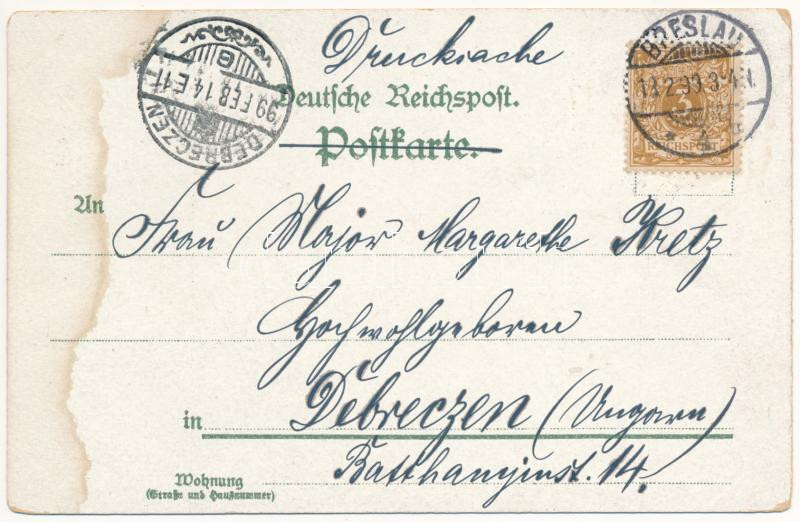 Drucksache
Deutsche Reichspost.
Postkarte.
BRESLAU
13.2.99.3-4N.
3
REICHSPOST
DEBRECZEN
'99 FEB 14 E 11
An
Frau Major Margarethe Kretz
Hochwohlgeboren
in Debreczen (Ungarn)
Batthanyinst. 14.
Wohnung
(Straße und Hausnummer)